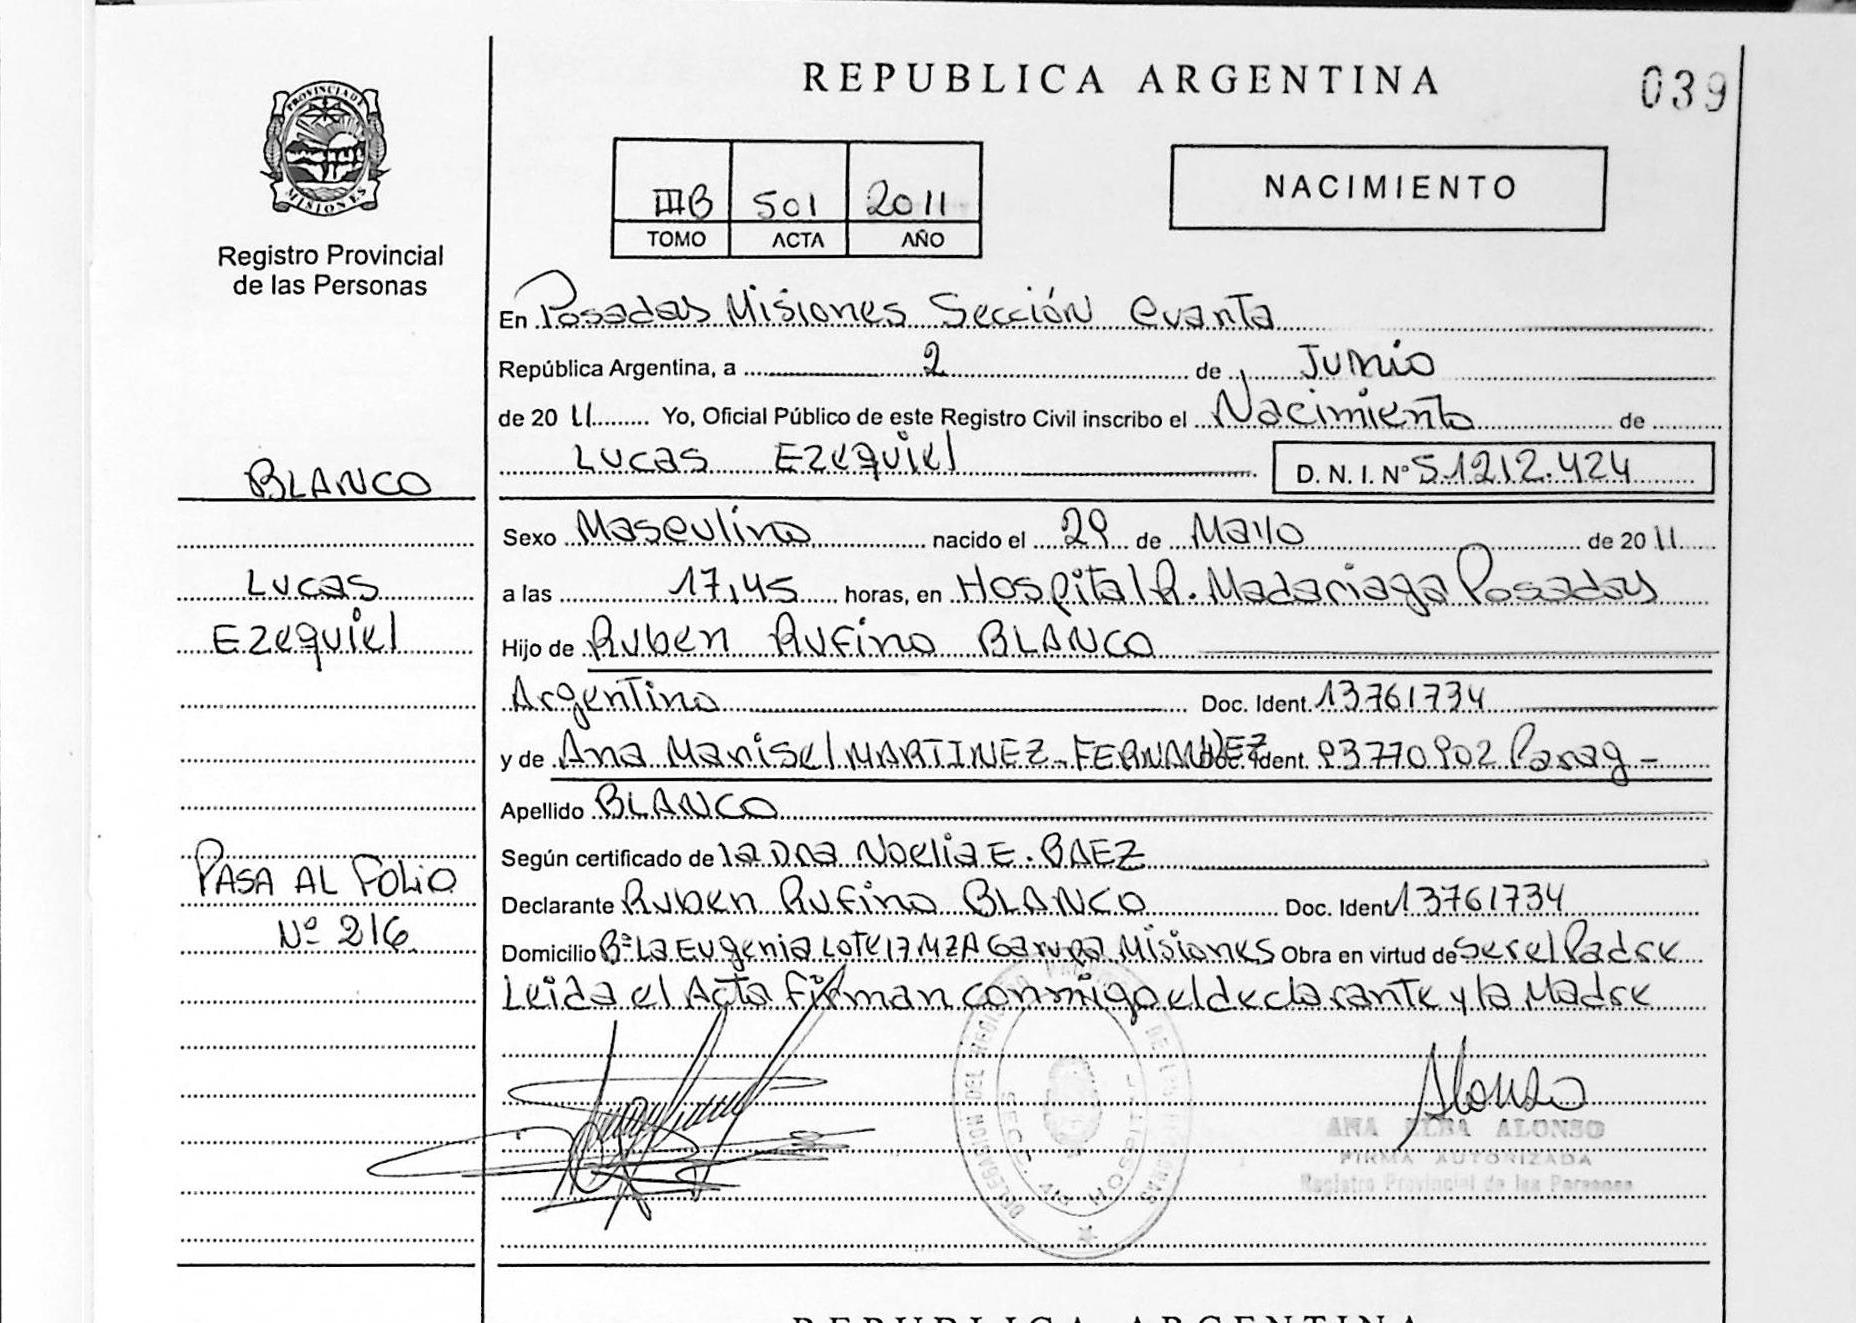 REPUBLICA ARGENTINA
039
PROVINCIA DE
MISIONES
Registro Provincial
de las Personas
IIIB 501 2011
TOMO ACTA AÑO
NACIMIENTO
En Posadas Misiones Sección Cuarta
República Argentina, a 2 de Junio
de 2011 Yo, Oficial Público de este Registro Civil inscribo el Nacimiento de
Lucas Ezequiel D. N. I. Nº 51212.424
BLANCO
Lucas
Ezequiel
PASA AL FOLIO
Nº 216
Sexo Masculino nacido el 29 de Mayo de 2011
a las 17,45 horas, en Hospital R. Madariaga Posadas
Hijo de Ruben Rufino BLANCO
Argentino Doc. Ident. 13761734
y de Ana Marisel MARTINEZ-FERNANDEZ Doc. Ident. 93770902 Parag-
Apellido BLANCO
Según certificado de la Dra Noelia E. BAEZ
Declarante Ruben Rufino BLANCO Doc. Ident 13761734
Domicilio Bº La Eugenia Lote 17 MZA Garupa Misiones Obra en virtud de ser el Padre
Leida el Acta Firman conmigo el declarante y la Madre
DELEGACION DEL REGISTRO
SECC.
Alonso
ANA ELBA ALONSO
FIRMA AUTORIZADA
Registro Provincial de las Personas
REPUBLICA ARGENTINA